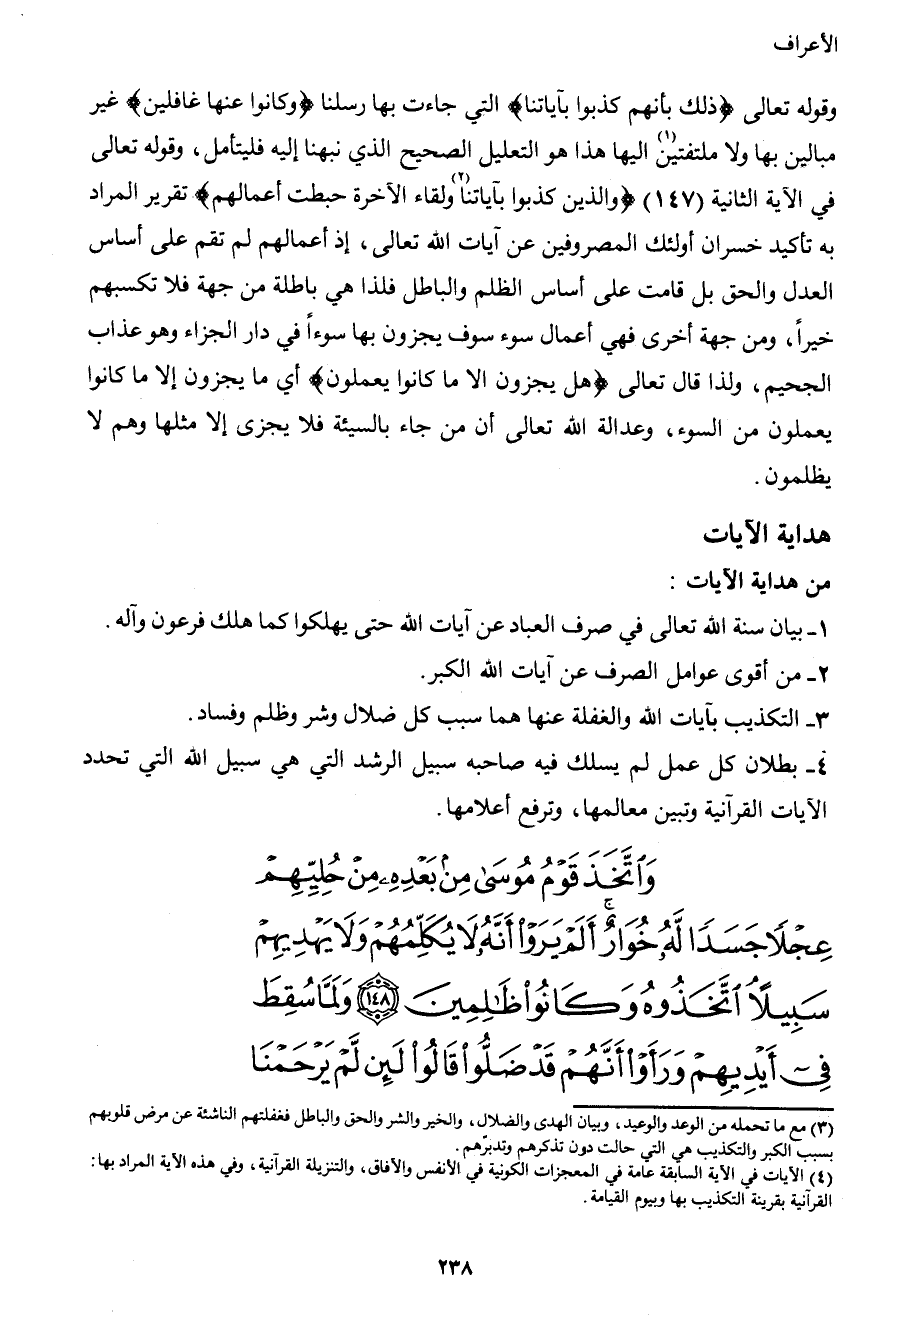 الأعراف
وقوله تعالى ﴿ذلك بأنهم كذبوا بآياتنا﴾ التي جاءت بها رسلنا ﴿وكانوا عنها غافلين﴾ غير
مبالين بها ولا ملتفتين(١) اليها هذا هو التعليل الصحيح الذي نبهنا إليه فليتأمل، وقوله تعالى
في الآية الثانية (١٤٧) ﴿والذين كذبوا بآياتنا(٢) ولقاء الآخرة حبطت أعمالهم﴾ تقرير المراد
به تأكيد خسران أولئك المصروفين عن آيات الله تعالى، إذ أعمالهم لم تقم على أساس
العدل والحق بل قامت على أساس الظلم والباطل فلذا هي باطلة من جهة فلا تكسبهم
خيراً، ومن جهة أخرى فهي أعمال سوء سوف يجزون بها سوءاً في دار الجزاء وهو عذاب
الجحيم، ولذا قال تعالى ﴿هل يجزون الا ما كانوا يعملون﴾ أي ما يجزون إلا ما كانوا
يعملون من السوء، وعدالة الله تعالى أن من جاء بالسيئة فلا يجزى إلا مثلها وهم لا
يظلمون.
هداية الآيات
من هداية الآيات :
١ـ بيان سنة الله تعالى في صرف العباد عن آيات الله حتى يهلكوا كما هلك فرعون وآله.
٢ـ من أقوى عوامل الصرف عن آيات الله الكبر.
٣ـ التكذيب بآيات الله والغفلة عنها هما سبب كل ضلال وشر وظلم وفساد.
٤ـ بطلان كل عمل لم يسلك فيه صاحبه سبيل الرشد التي هي سبيل الله التي تحدد
الآيات القرآنية وتبين معالمها، وترفع أعلامها.
وَٱتَّخَذَ قَوْمُ مُوسَىٰ مِنۢ بَعْدِهِۦ مِنْ حُلِيِّهِمْ
عِجْلًا جَسَدًا لَّهُۥ خُوَارٌ ۚ أَلَمْ يَرَوْا۟ أَنَّهُۥ لَا يُكَلِّمُهُمْ وَلَا يَهْدِيهِمْ
سَبِيلًا ٱتَّخَذُوهُ وَكَانُوا۟ ظَـٰلِمِينَ ١٤٨ وَلَمَّا سُقِطَ
فِىٓ أَيْدِيهِمْ وَرَأَوْا۟ أَنَّهُمْ قَدْ ضَلُّوا۟ قَالُوا۟ لَئِن لَّمْ يَرْحَمْنَا
(٣) مع ما تحمله من الوعد والوعيد، وبيان الهدى والضلال، والخير والشر والحق والباطل فغفلتهم الناشئة عن مرض قلوبهم
بسبب الكبر والتكذيب هي التي حالت دون تذكرهم وتدبّرهم.
(٤) الآيات في الآية السابقة عامة في المعجزات الكونية في الأنفس والآفاق، والتنزيلة القرآنية، وفي هذه الآية المراد بها:
القرآنية بقرينة التكذيب بها وبيوم القيامة.
٢٣٨